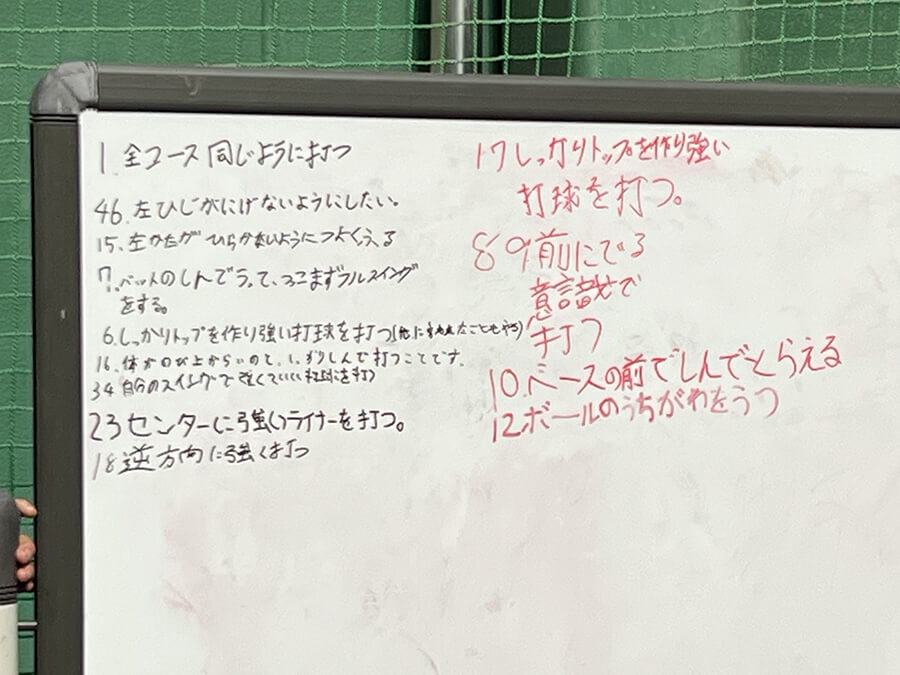 1. 全コース 同じように打つ
46. 左ひじがにげないようにしたい。
15. 左かたが ひらかないようにつよくふる
7. バットのしんでうって、つこまずフルスイング
をする。
6. しっかりトップを作り強い打球を打つ
16. 体が のび上がらないので、しっかりしんで打つことです。
34 自分のスイングで強くていい打球を打つ
23 センターに強いライナーを打つ。
18 逆方向に強く打つ
17 しっかりトップを作り強い
打球を打つ。
89 前にでる
意識で
打つ
10. ベースの前でしんでとらえる
12 ボールのうちがわをうつ